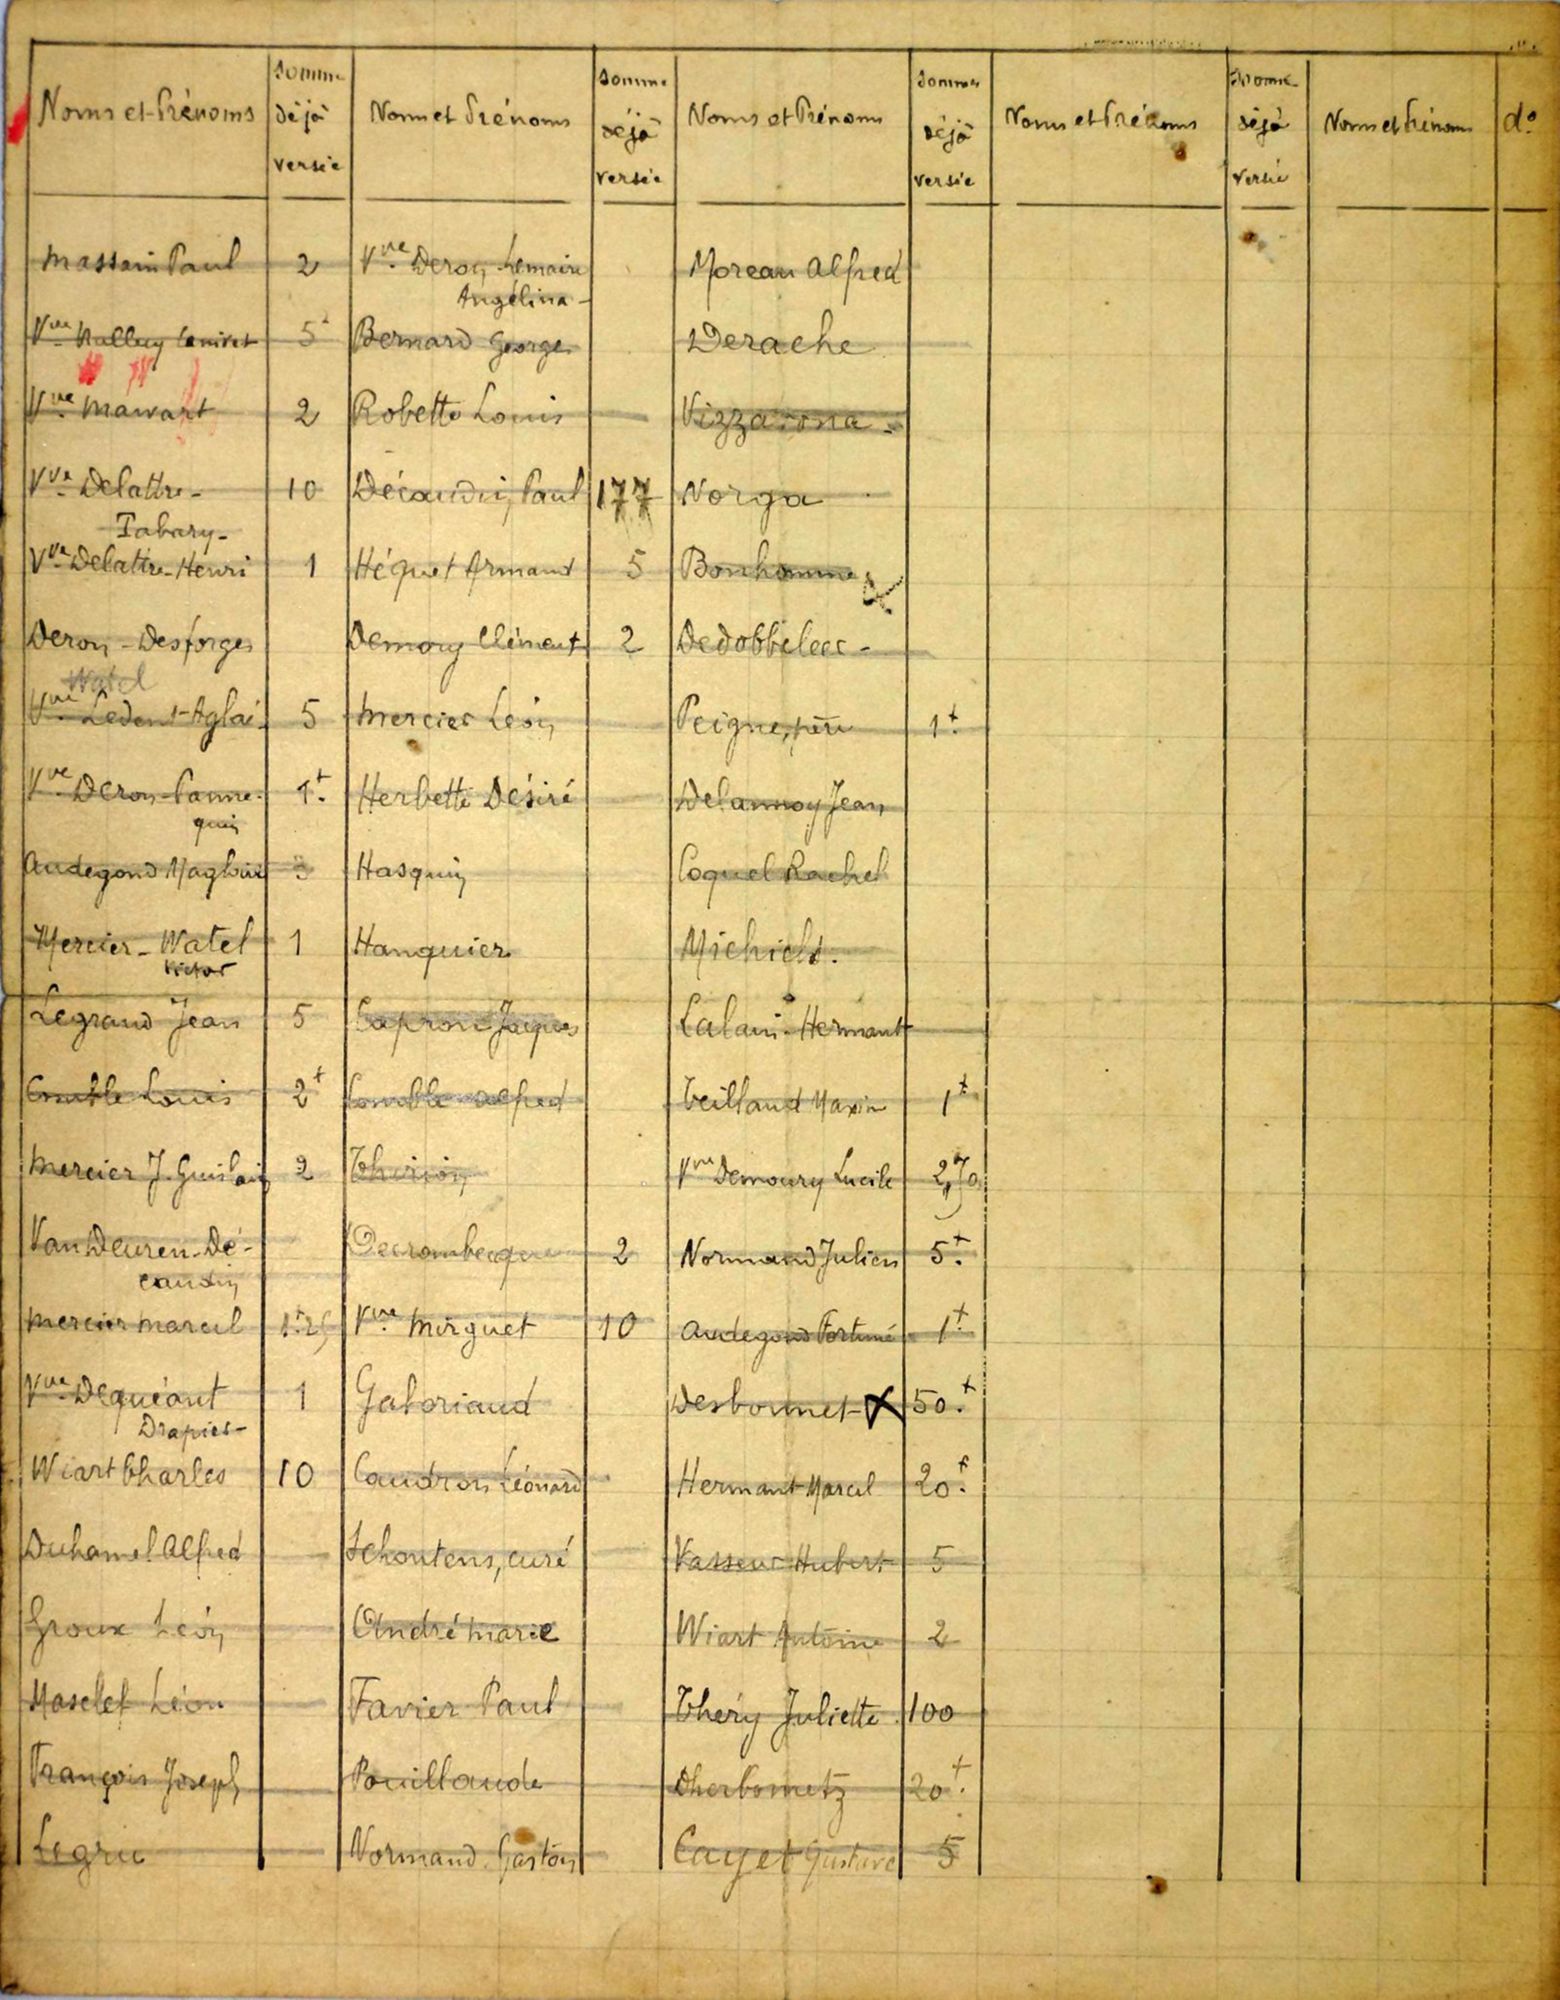 Noms et Prénoms
Somme déjà versée
Noms et Prénoms
Somme déjà versée
Noms et Prénoms
Somme déjà versée
Noms et Prénoms
Somme déjà versée
Noms et Prénoms
do
Massain Paul 2 Vve Deron Lemaire Moreau Alfred
Angélina -
Vve 5 Bernard Georges Derache
Vve Mawart 2 Robette Louis Vizzavona -
Vve Delattre - 10 Décaudin Paul 177 Norga
Tabary -
Vve Delattre - Henri 1 Héquet Armand 5 Bonhomme
Deron - Desforges Demory Clément 2 Dedobbeleer -
Watel
Vve Ledent - Aglaé 5 Mercier Léon Peigne, père 1+
Vve Deron - Panne- 1+ Herbette Désiré Delannoy Jean
quin
Audegond Magloire 3 Hasquin Coquel Rachel
Mercier - Watel 1 Hanquier Michiels.
Victor
Legrand Jean 5 Capron Jacques Lalain - Hermant
Comble Louis 2+ Comble Alfred Teillaud Maxim 1+
Mercier J. Guislain 2 Thirion Vve Demoury Lucile 2,70
Van Deuren - Dé- Decrombecque 2 Normand Julien 5+
caudin
Mercier Marcel 1.25 Vve Mirguet 10 Audegond Fortuné 1+
Vve Dequéant 1 Gaboriaud Desbonnet - X 50+
Drapier -
Wiart Charles 10 Caudron Léonard Hermant Marcel 20+
Duhamel Alfred Schoutens, curé Vasseur Hubert 5
Groux Léon André Marie Wiart Antoine 2
Masclef Léon Favier Paul Théry Juliette 100
François Joseph Pouillaude Dherbometz 20+
Legru Normand Gaston Cayet Gustave 5